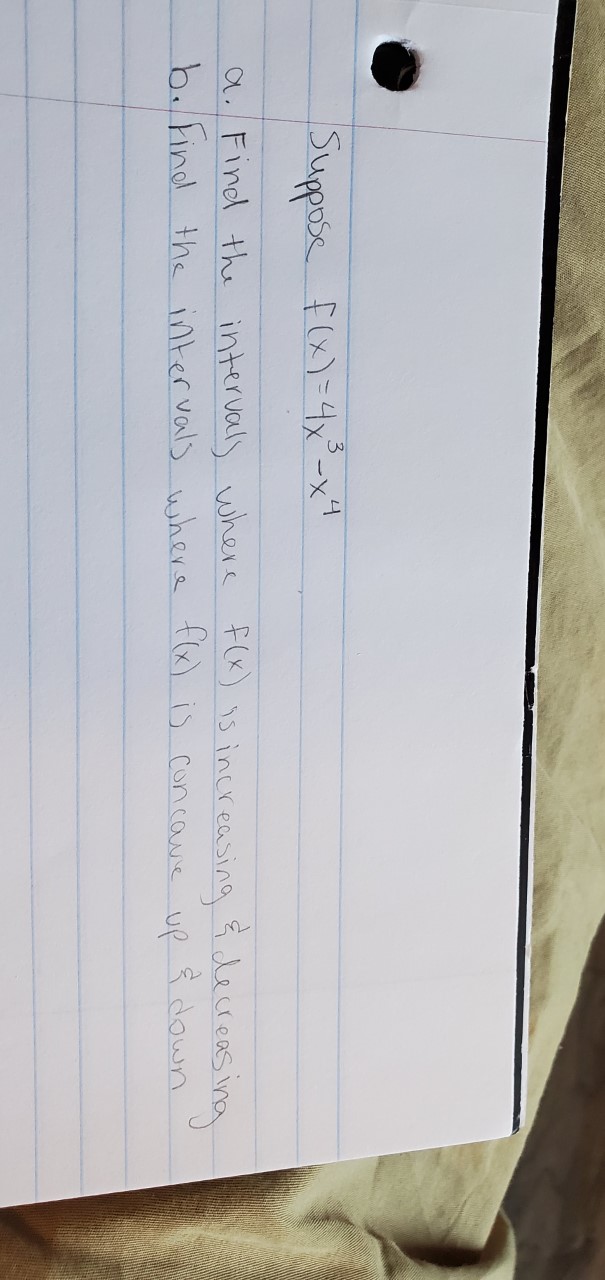 Suppose f(x)=4x³-x⁴
a. Find the intervals where f(x) is increasing & decreasing
b. Find the intervals where f(x) is concave up & down